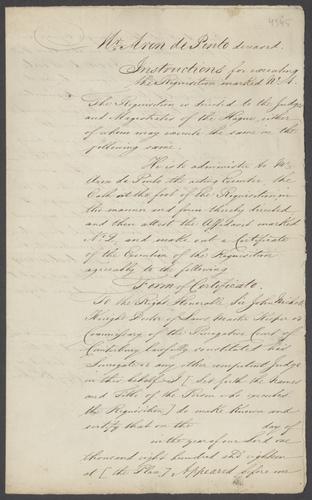 4965
Mr. Aron de Pinto deceased.
Instructions for executing
the Requisition marked No. 1.
The Requisition is directed to the Judges
and Magistrates of the Hague, either
of whom may execute the same in the
following same.
He is to administer to Mr.
Aron de Pinto the acting Executor the
Oath at the foot of the Requisition in
the manner and form thereby directed
and then attest the Affidavit marked
No. 2, and make out a Certificate
of the Execution of the Requisition
agreeably to the following
Form of Certificate.
To the Right Honorable Sir John Nicholl
Knight Doctor of Laws Master Keeper or
Commissary of the Prerogative Court of
Canterbury lawfully constituted his
Surrogate or any other competent Judge
in this behalf I [set forth the Names
and Title of the Person who executes
the Requisition] do make Known and
certify that on the day of
in the year of our Lord one
thousand eight hundred and eighteen
at [the Place] Appeared before me